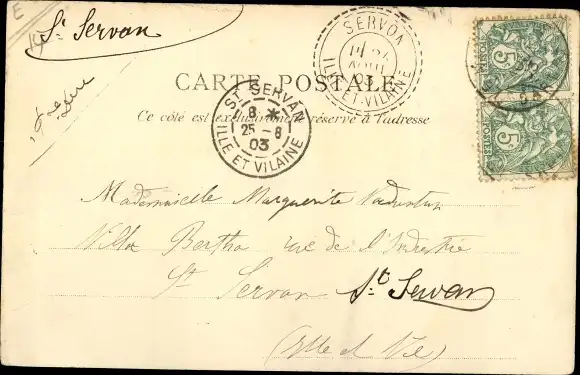 E
St Servan
SERVON
24
AOUT
03
ILLE ET VILAINE
POSTES
5
POSTES
5
CARTE POSTALE
Ce côté est exclusivement réservé à l'adresse
ST SERVAN
8 *
25 - 8
03
ILLE ET VILAINE
Mademoiselle Marguerite
Villa Bertha rue de l'Industrie
St Servan St Servan
(Ille et Vil)